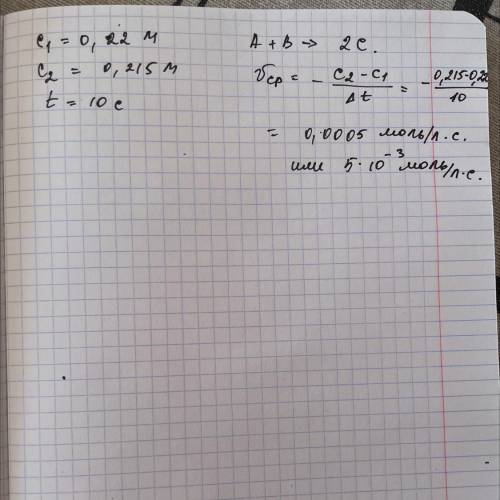 c₁ = 0,22 м
c₂ = 0,215 м
t = 10 с
A + B → 2C.
υср = - (c₂ - c₁)/Δt = - (0,215-0,22)/10
= 0,0005 моль/л.с.
или 5·10⁻³ моль/л.с.